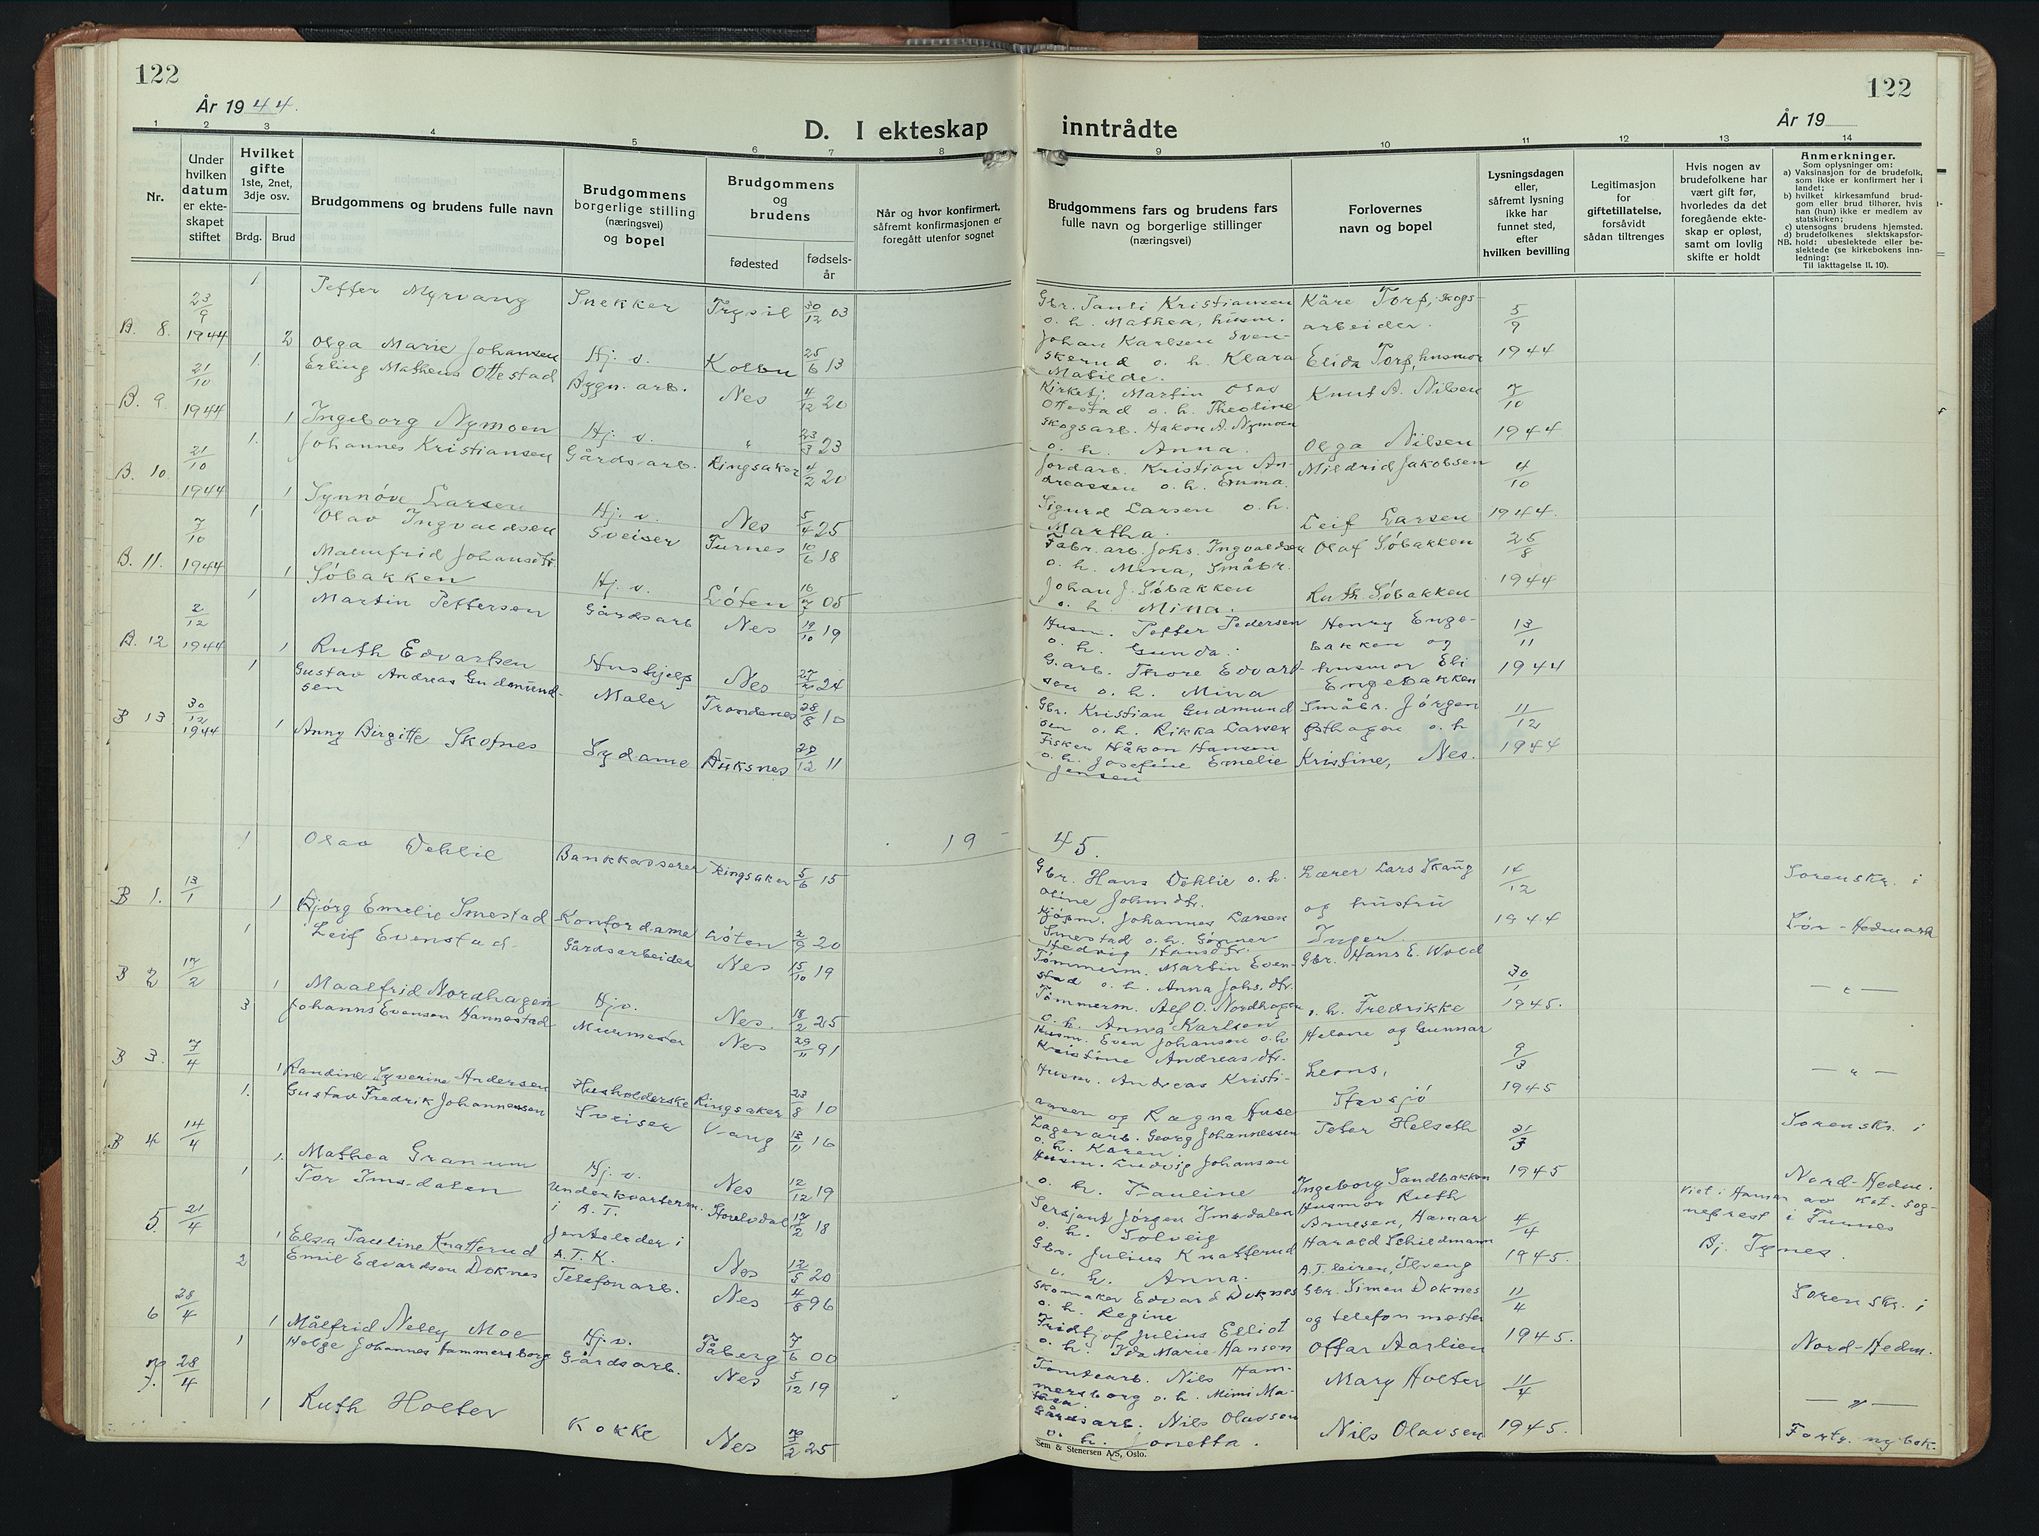 122
122
År 1944.
År 19
D. I ekteskap inntrådte
1 2 3 4 5 6 7 8 9 10 11 12 13 14
Nr.
Under hvilken datum er ekteskapet stiftet
Hvilket gifte 1ste, 2net, 3dje osv.
Brdg. Brud
Brudgommens og brudens fulle navn
Brudgommens borgerlige stilling (næringsvei) og bopel
Brudgommens og brudens
fødested
fødselsår
Når og hvor konfirmert, såfremt konfirmasjonen er foregått utenfor sognet
Brudgommens fars og brudens fars fulle navn og borgerlige stillinger (næringsvei)
Forlovernes navn og bopel
Lysningsdagen eller, såfremt lysning ikke har funnet sted, efter hvilken bevilling
Legitimasjon for giftetillatelse, forsåvidt sådan tiltrenges
Hvis nogen av brudefolkene har vært gift før, hvorledes da det foregående ekteskap er opløst, samt om lovlig skifte er holdt
Anmerkninger.
Som oplysninger om:
a) Vaksinasjon for de brudefolk, som ikke er konfirmert her i landet;
b) hvilket kirkesamfund brudgom eller brud tilhører, hvis han (hun) ikke er medlem av statskirken;
c) utensogns brudens hjemsted.
d) brudefolkenes slektskapsforhold: ubeslektede eller beslektede (se kirkebokens innledning:
NB. Til iakttagelse II. 10).
B. 8. 23/9 1944 1 Petter Myrvang Snekker Trysil 30/12 03 Gbr. Pauli Kristiansen o. h. Mathea, husm. Kåre Torp, skogsarbeider. 5/9 1944
2 Olga Marie Johansen Hj. v. Kolbu 25/6 13 Johan Karlsen Svenskerud o. h. Klara Matilde. Elida Torp, husmor
B. 9. 21/10 1944 1. Erling Matheus Ottestad Bygn. arb. Nes 4/12 20 Kirketj. Martin Olav Ottestad o. h. Theoline Knut A. Nilsen 7/10 1944
1 Ingeborg Nymoen Hj. v. " 23/3 23 Skogsarb. Hakon A. Nymoen o. h. Anna. Olga Nilsen
B. 10. 21/10 1944 1. Johannes Kristiansen Gårdsarb. Ringsaker 4/2 20 Jordarb. Kristian Andreassen o. h. Emma. Mildrid Jakobsen 4/10 1944.
1 Synnöve Larsen Hj. v. Nes 5/4 25 Sigurd Larsen o. h. Martha. Leif Larsen
B. 11. 7/10 1944 1 Olav Ingvaldsen Sveiser Furnes 10/6 18 Fabr. arb. Johs. Ingvaldsen o. h. Mina, Småbr. Olaf Söbakken 25/8 1944
1 Malmfrid Johansdtr. Söbakken Hj. v. Löten 16/7 05 Johan J. Söbakken o. h. Mina. Ruth Söbakken
B. 12 2/12 1944 1 Martin Pettersen Gårdsarb Nes 19/10 19 Husm. Petter Pedersen o. h. Gunda. Henry Engebakken og 13/11 1944
1 Ruth Edvartsen Hushjelp Nes 24 G.arb. Thore Edvardsen o. h. Mina husmor Eli Engebakken
B 13. 30/12 1944 1 Gustav Andreas Gudmundsen Maler Trondenes 28/8 10 Gbr. Kristian Gudmundsen o. h. Rikka Larsen Småbr. Jörgen Østhagen o. h 11/12 1944
1 Anny Birgitte Skotnes Sydame Buksnes 20/12 11 Fisker Håkon Hansen o. h. Josefine Emelie Jensen Kristine, Nes.
19 45.
B 1. 13/1 1 Olav Dehlie Bankkasserer Ringsaker 5/6 15 Gbr. Hans Dehlie o. h. Oline Johnsdtr. Lærer Lars Skaug og hustru 14/12 1944 Sorenskr. i Sør-Hedmark
1 Bjørg Emelie Smestad Kontordame Löten 2/9 20 Kjöpm. Johannes Larsen Smestad o. h. Gunner Hedvig Hansdtr. Inger.
B 2 17/2 1 Leif Evenstad Gårdsarbeider Nes 15/10 19 Tömmerm. Martin Evenstad o. h. Anna Johs. dtr. Gbr. Hans E. Wold 30/1 1945. - " -
1 Maalfrid Nordhagen Hjv. Nes. 18/2 25 Tömmerm. Alf O. Nordhagen o. h. Anna Karlsen o. h. Fredrikke
B 3. 7/4 3 Johanns Evensen Hannestad Murmester Nes 29/11 91 Husm. Even Johansen o. h Kristine Andreasdtr. Helene og Gunnar 9/3 1945 - " -
1 Randine Syverine Andersen Husholderske Ringsaker 23/8 10 Husm. Andreas Kristiansen og Ragna Huse Leons, Stavsjö
B 4. 14/4 1. Gustav Fredrik Johannessen Sveiser Vang 13/11 16 Lagerarb. Georg Johannessen o. h. Karen. Peter Helseth 21/3 1945 Sorenskr. i Nord-Hedm.
1. Mathea Granum Hj. v. Nes 12/12 19 Husm. Ludvig Johansen o. h. Pauline Ingeborg Sandbakken
5. 21/4 1 Tor Imsdalen Underkvarterm. i A. T. Storelvdal 17/2 18 Sersjant Jörgen Imsdalen o. h. Solveig Husmor Ruth Arnesen, Hamar 4/4 1945. Viet i Hamar av kst. sogneprest i Furnes Bj. Tynes.
1 Elsa Pauline Knatterud Jenteleder i A. T. K. Nes 12/5 20 Gbr. Julius Knatterud o. h. Anna. Harald Schiedmann A. T. leiren,
6 28/4 2 Emil Edvardsen Doknes Telefonarb. Nes 4/8 96 Skomaker Edvard Doknes o. h. Regine Gbr. Simen Doknes og telefonmester 11/4 1945. Sorenskr. i Nord-Hedm.
1 Målfrid Nelly Moe Hj. v. Fåberg 7/6 00 Fridtjof Julius Elliot o. h. Ida Marie Hansen Ottar Aarlien
7. 28/4 1 Helge Johannes Hammersborg Gårdsarb. Nes 5/12 19 Tomtearb. Nils Hammersborg o. h. Mimi Matea. Mary Holter 11/4 1945. - " -
1 Ruth Holter Kokke Nes 25 Gårdsarb. Nils Olavsen o. h. Lonetta. Nils Olavsen Forts. ny bok.
Sem & Stenersen A/S, Oslo.